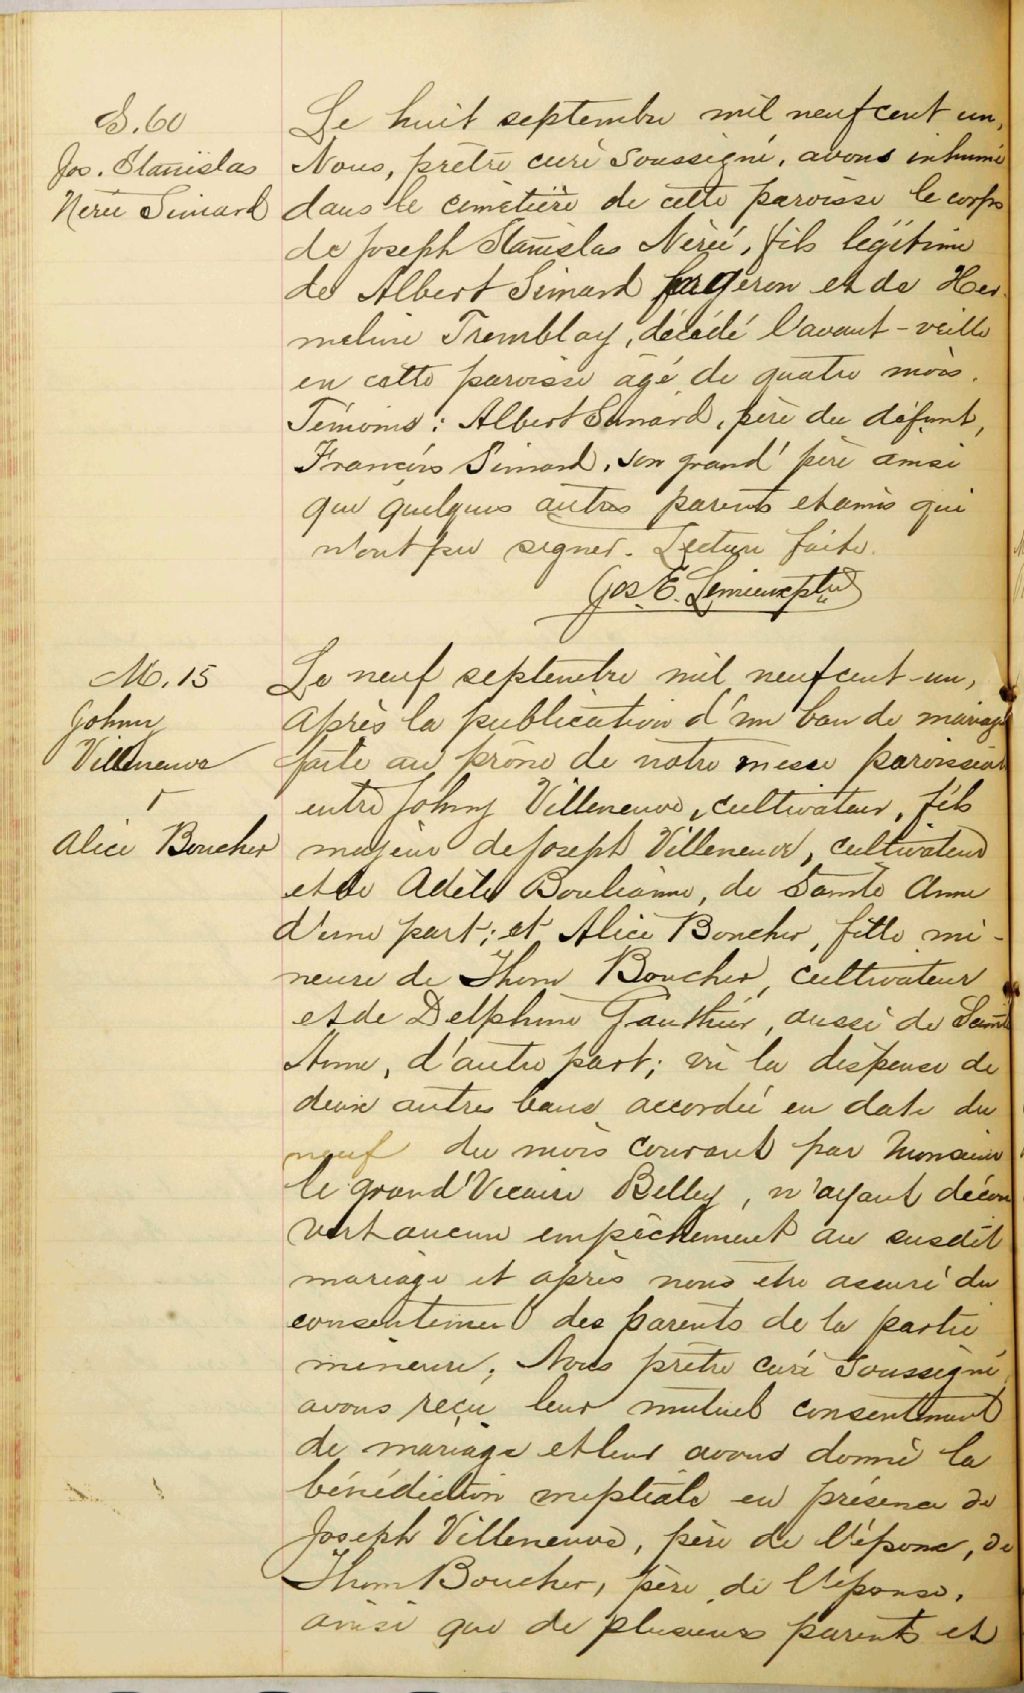 S. 60
Jos. Stanislas
Nérée Simard
Le huit septembre mil neuf cent un,
Nous, prêtre curé soussigné, avons inhumé
dans le cimetière de cette paroisse le corps
de Joseph Stanislas Nérée, fils légitime
de Albert Simard forgeron et de Her-
meline Tremblay, décédé l'avant-veille
en cette paroisse agé de quatre mois.
Témoins : Albert Simard, père du défunt,
François Simard, son grand'père ainsi
que quelques autres parents et amis qui
n'ont pu signer. Lecture faite.
Jos. E. Lemieux ptre
M. 15
Johnny
Villeneuve
&
Alice Boucher
Le neuf septembre mil neuf cent-un,
après la publication d'un ban de mariage
faite au prône de notre messe paroissiale
entre Johnny Villeneuve, cultivateur, fils
majeur de Joseph Villeneuve, cultivateur
et de Adèle Boulianne, de Sainte Anne
d'une part; et Alice Boucher, fille mi-
neure de Thom Boucher, cultivateur
et de Delphine Gauthier, aussi de Sainte
Anne, d'autre part; vu la dispense de
deux autres bans accordée en date du
neuf du mois courant par Monsieur
le grand'Vicaire Belley, n'ayant décou
vert aucun empêchement au susdit
mariage et après nous être assuré du
consentement des parents de la partie
mineure; Nous prêtre curé soussigné,
avons reçu leur mutuel consentement
de mariage et leur avons donné la
bénédiction nuptiale en présence de
Joseph Villeneuve, père de l'époux, de
Thom Boucher, père de l'épouse,
ainsi que de plusieurs parents et